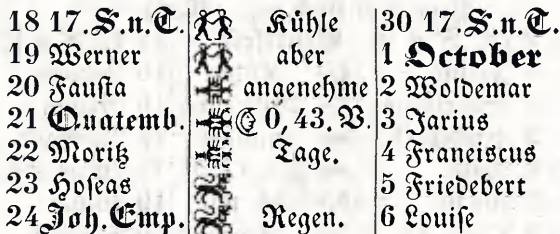 18 17.S.n.T. Kühle 30 17.S.n.T.
19 Werner aber 1 October
20 Fauſta angenehme 2 Woldemar
21 Quatemb. ☾ 0, 43. V. 3 Jarius
22 Moritz Tage. 4 Franciscus
23 Hoſeas 5 Friedebert
24 Joh. Emp. Regen. 6 Louiſe